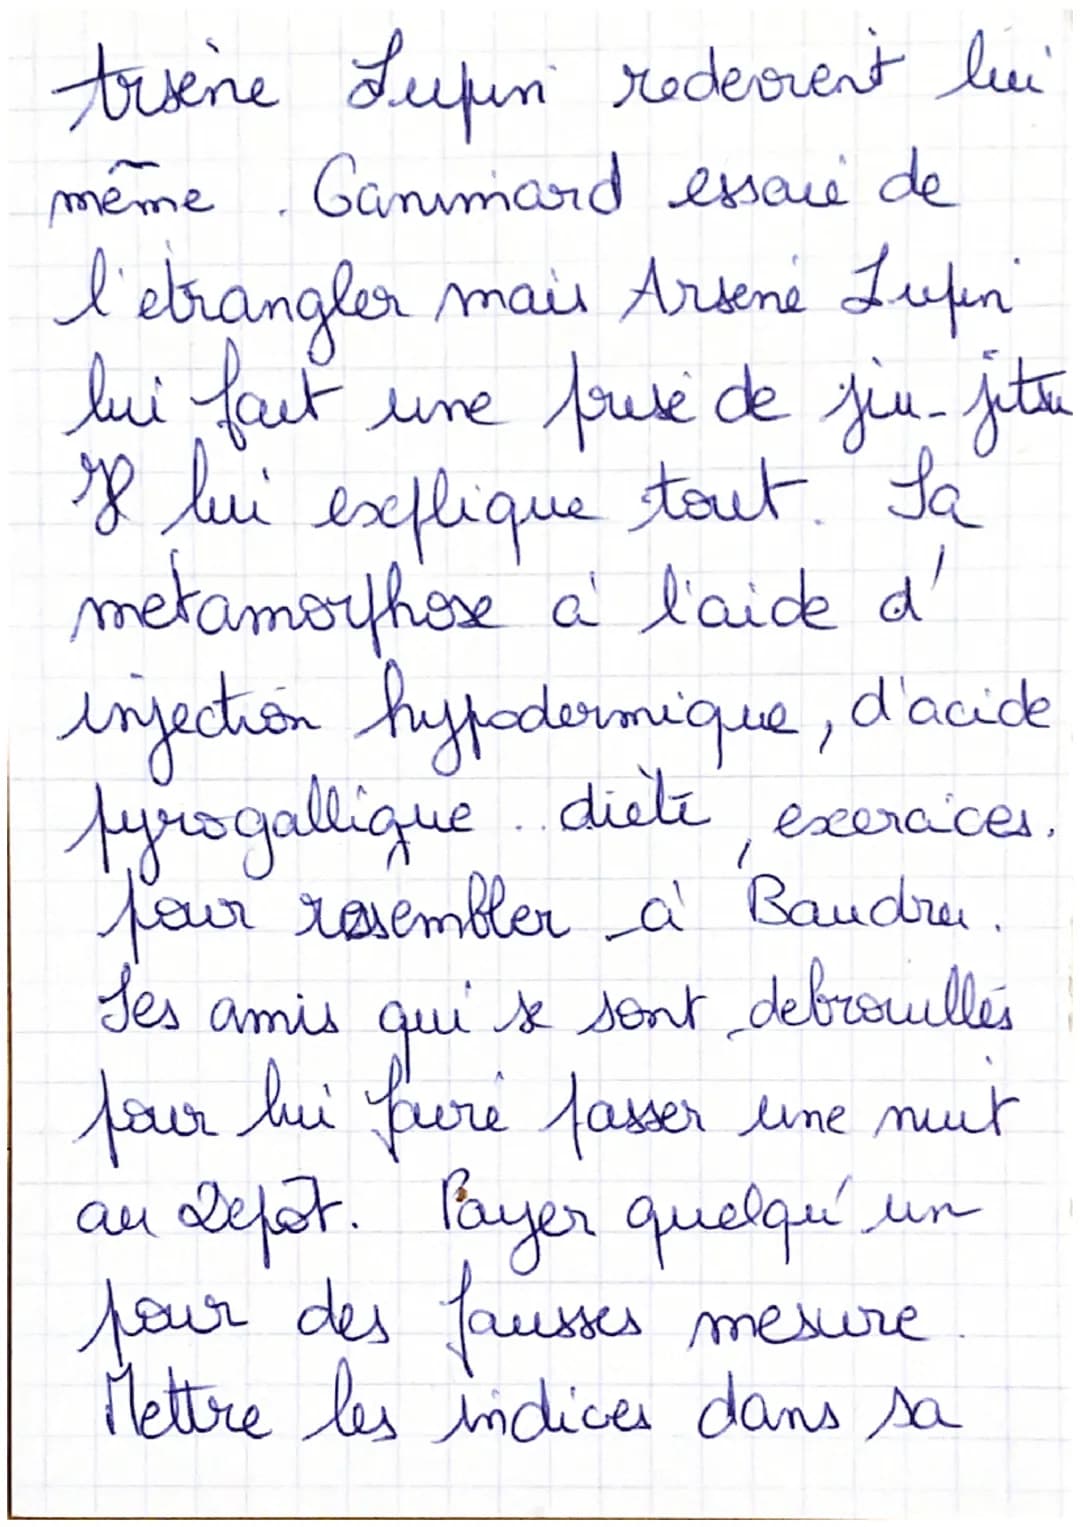 Arsène Lupin redevient lui
même. Ganimard essaie de
l'etrangler mais Arsène Lupin
lui fait une prise de jiu-jitsu
Il lui explique tout. Sa
métamorphose à l'aide d'
injection hypodermique, d'acide
pyrogallique.. diète, exercices.
pour ressembler à Baudru.
Ses amis qui se sont debrouillés
pour lui faire passer une nuit
au Depôt. Payer quelqu'un
pour des fausses mesure.
Mettre les indices dans sa